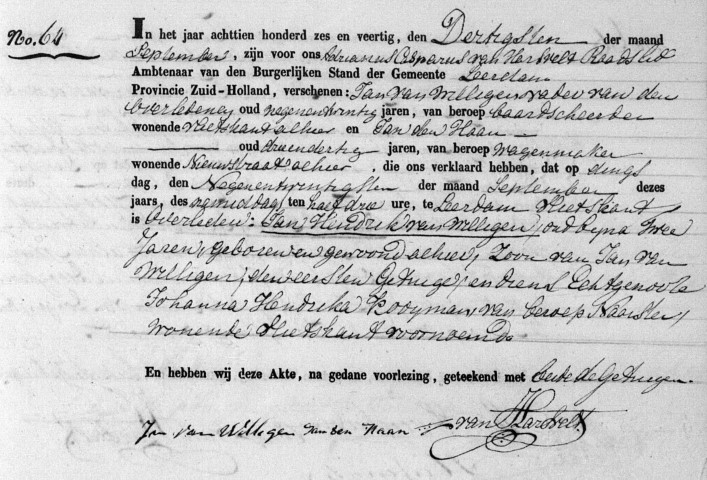 No. 64
In het jaar achttien honderd zes en veertig, den Dertigsten der maand
September, zijn voor ons, Adrianus Casparus van Hardvelt Raadslid
Ambtenaar van den Burgerlijken Stand der Gemeente Leerdam
Provincie Zuid-Holland, verschenen: Jan van Willigen, vader van den
overledenen, oud negenentwintig jaren, van beroep baardscheerder
wonende Vlietskant alhier en Jan den Haan
oud drieendertig jaren, van beroep wagenmaker
wonende Nieuwstraat alhier, die ons verklaard hebben, dat op dings
dag, den Negenentwintigsten der maand September dezes
jaars, des namiddags ten half drie ure, te Leerdam Vlietskant
is overleden: Jan Hendrik van Willigen, oud byna twee
Jaren, geboren en gewoond alhier, Zoon van Jan van
Willigen, den eersten Getuige, en diens Echtgenoote
Johanna Hendrika Kooyman, van beroep Naaister,
wonende Vlietskant voornoemd.
En hebben wij deze Akte, na gedane voorlezing, geteekend met beide de Getuigen.
Jn van Willegen Jan den Haan van Hardvelt